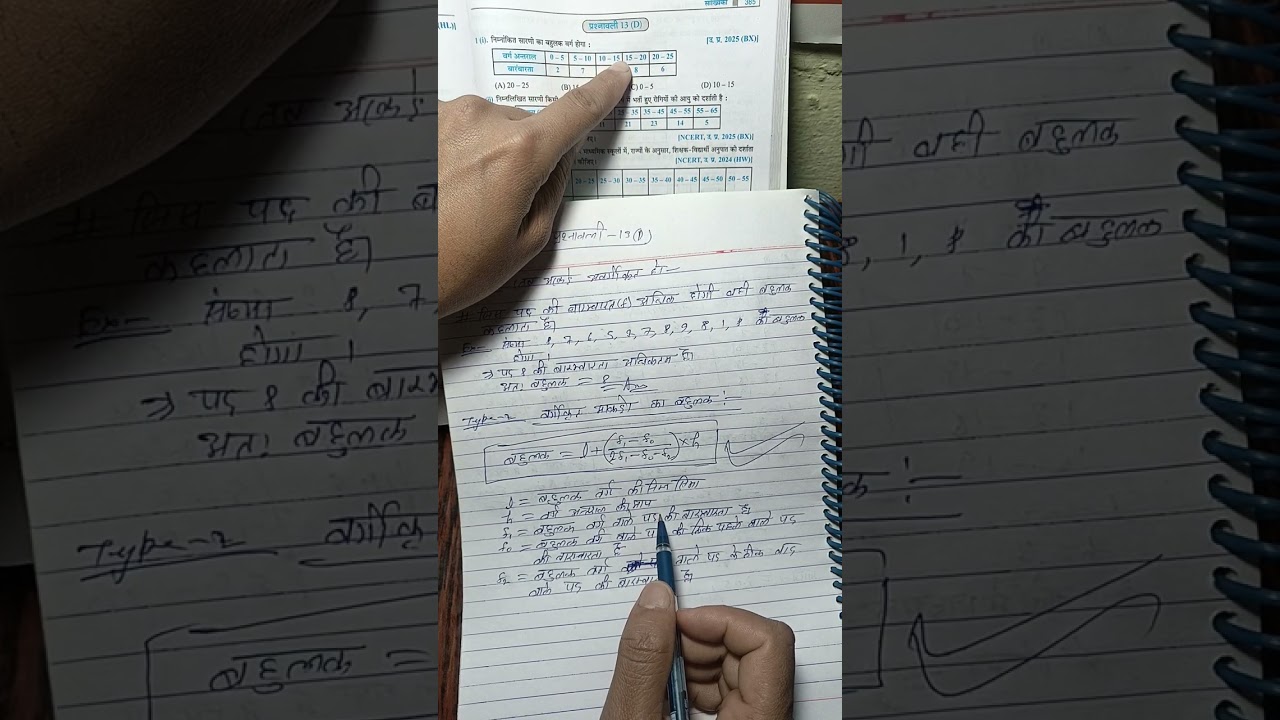 सांख्यिकी 385
प्रश्नावली 13 (D)
1 (i). निम्नांकित सारणी का बहुलक वर्ग होगा : [उ. प्र. 2025 (BX)]
वर्ग अन्तराल 0 – 5 5 – 10 10 – 15 15 – 20 20 – 25
बारंबारता 2 7 8 6
(A) 20 – 25 (B) 15 (C) 0 – 5 (D) 10 – 15
निम्नलिखित सारणी किसी में भर्ती हुए रोगियों की आयु को दर्शाती है :
25 – 35 35 – 45 45 – 55 55 – 65
21 23 14 5
[NCERT, उ. प्र. 2025 (BX)]
माध्यमिक स्कूलों में, राज्यों के अनुसार, शिक्षक-विद्यार्थी अनुपात को दर्शाता
[NCERT, उ. प्र. 2024 (HW)]
20 – 25 25 – 30 30 – 35 35 – 40 40 – 45 45 – 50 50 – 55
प्रश्नावली – 13 (D)
आंकड़े अवर्गीकृत हो –
पद की बारम्बारता (f) अधिक होगी वही बहुलक
कहलाता है।
Ex – संख्या 8, 7, 6, 5, 2, 7, 8, 9, 8, 1, 8 का बहुलक
होगा।
→ पद 8 की बारम्बारता अधिकतम है।
अतः बहुलक = 8 Ans
Type-2 वर्गीकृत आंकड़ो का बहुलक :-
बहुलक = l + (f₁ – f₀ / 2f₁ – f₀ – f₂) × h
l = बहुलक वर्ग की निम्न सीमा
h = वर्ग अन्तराल की माप
f₁ = बहुलक वर्ग वाले पद की बारम्बारता है
f₀ = बहुलक वर्ग वाले पद की ठीक पहले वाले पद
की बारम्बारता है
f₂ = बहुलक वर्ग वाले पद के ठीक बाद
वाले पद की है।